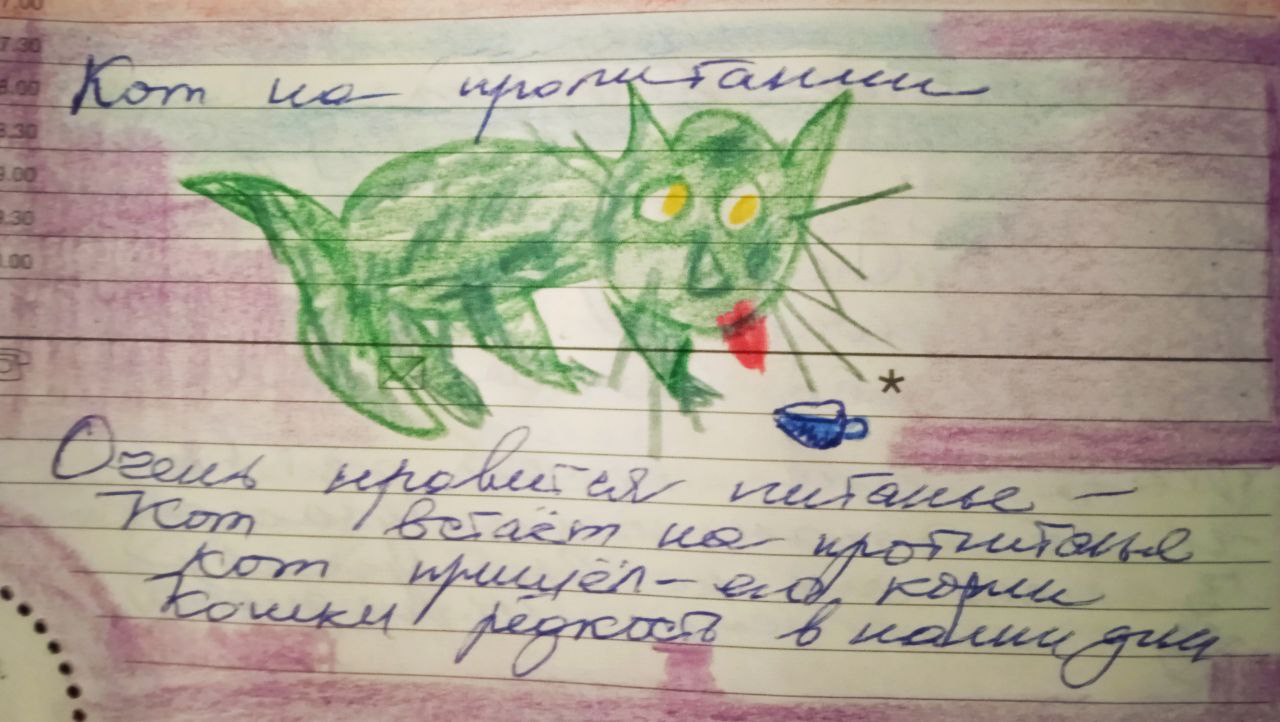 7.00
7.30
8.00
8.30
9.00
9.30
Кот на пропитании
*
Очень нравится питанье –
Кот встаёт на пропитанье
Кот пришёл – его корми
Кошки редкость в наши дни